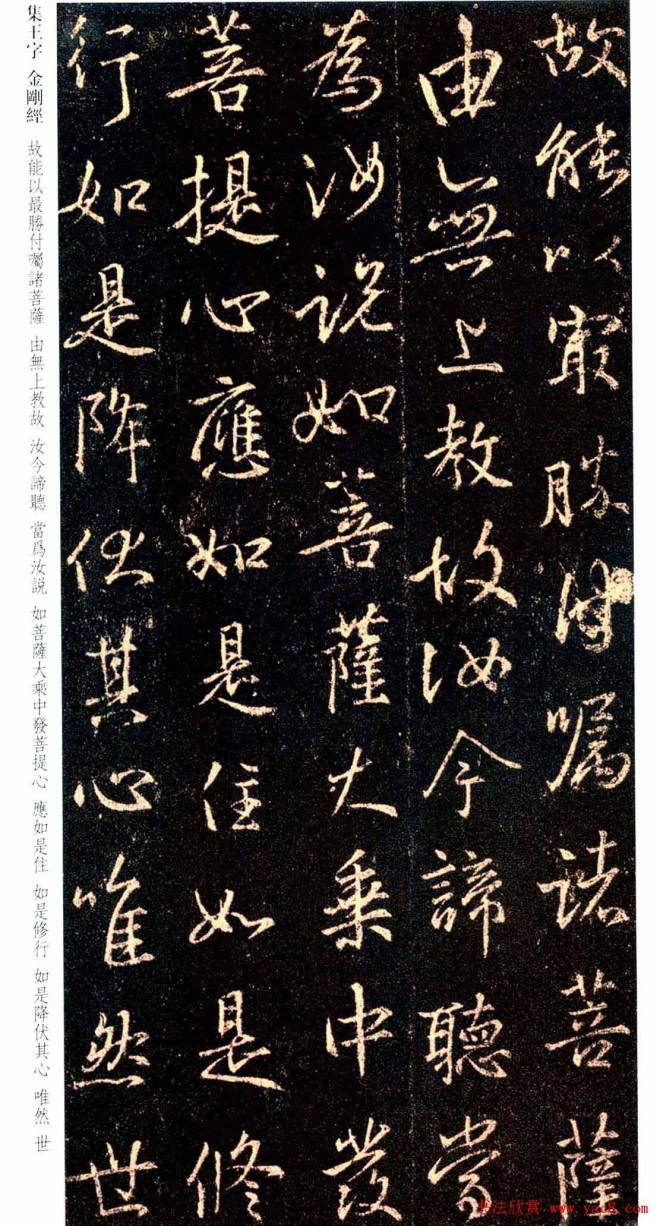 故能以最勝付囑諸菩薩
由無上教故汝今諦聽當
為汝説如菩薩大乘中發
菩提心應如是住如是修
行如是降伏其心唯然世
集王字 金剛經 故能以最勝付囑諸菩薩 由無上教故 汝今諦聽 當爲汝説 如菩薩大乘中發菩提心 應如是住 如是修行 如是降伏其心 唯然 世
书法欣赏 www.yac8.com